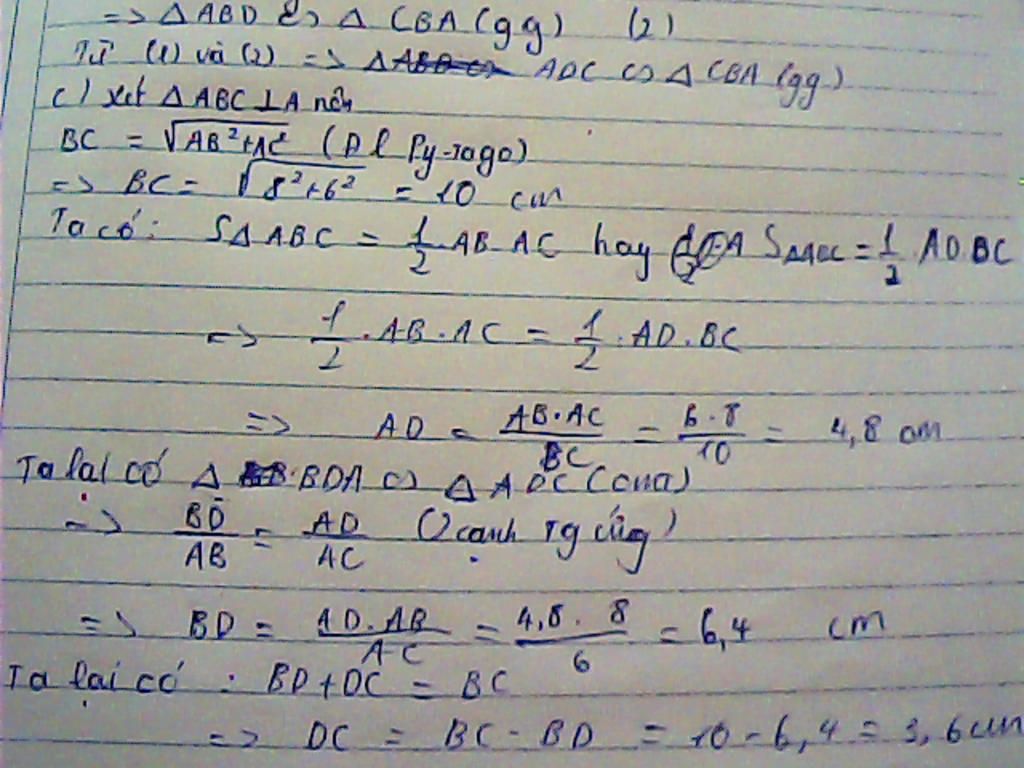 => △ABD ∽ △CBA (gg) (2)
Từ (1) và (2) => △ ADC ∽ △CBA (gg)
c) xét △ABC ⊥ A nên
BC = √AB²+AC² (Đl Py-Tago)
=> BC = √8²+6² = 10 cm
Ta có: S△ABC = 1/2 AB.AC hay S△ABC = 1/2 . AD.BC
=> 1/2 . AB.AC = 1/2 . AD.BC
=> AD = AB.AC/BC = 6.8/10 = 4,8 cm
Ta lại có △ BDA ∽ △ADC (cma)
=> BD/AB = AD/AC (2 cạnh tg ứng)
=> BD = AD.AB/AC = 4,8.8/6 = 6,4 cm
Ta lại có : BD+DC = BC
=> DC = BC - BD = 10 - 6,4 = 3,6 cm